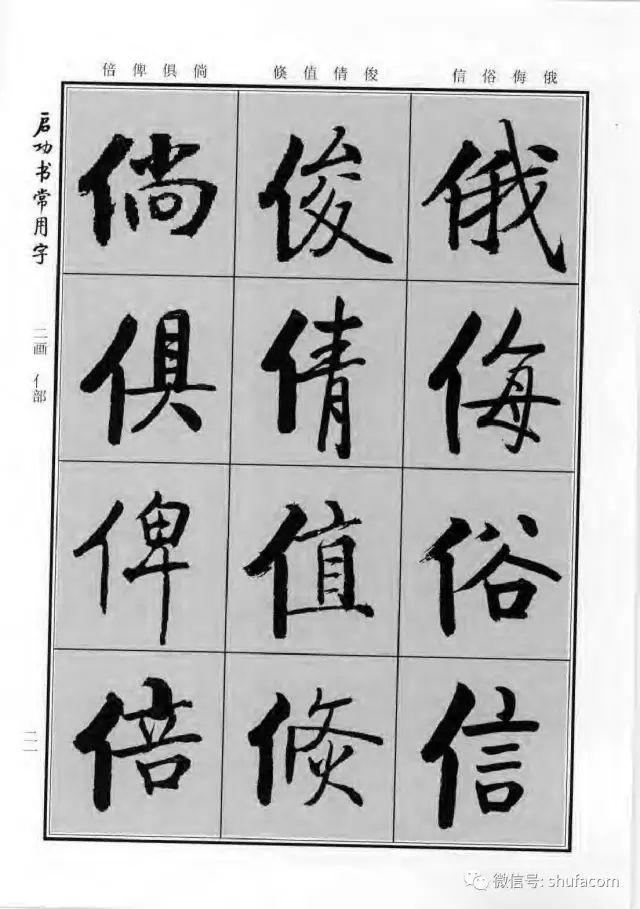 俄侮俗信 俊倩值倐 倘俱俾倍
俄侮俗信
俊倩值倐
倘俱俾倍
启功书常用字
二画 亻部
二一
微信号: shufacom